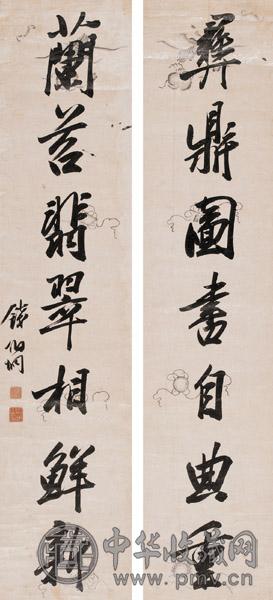 彝鼎图书自典重
蘭苕翡翠相鮮新
錢伯坰
中华收藏网
www.pmw.cn